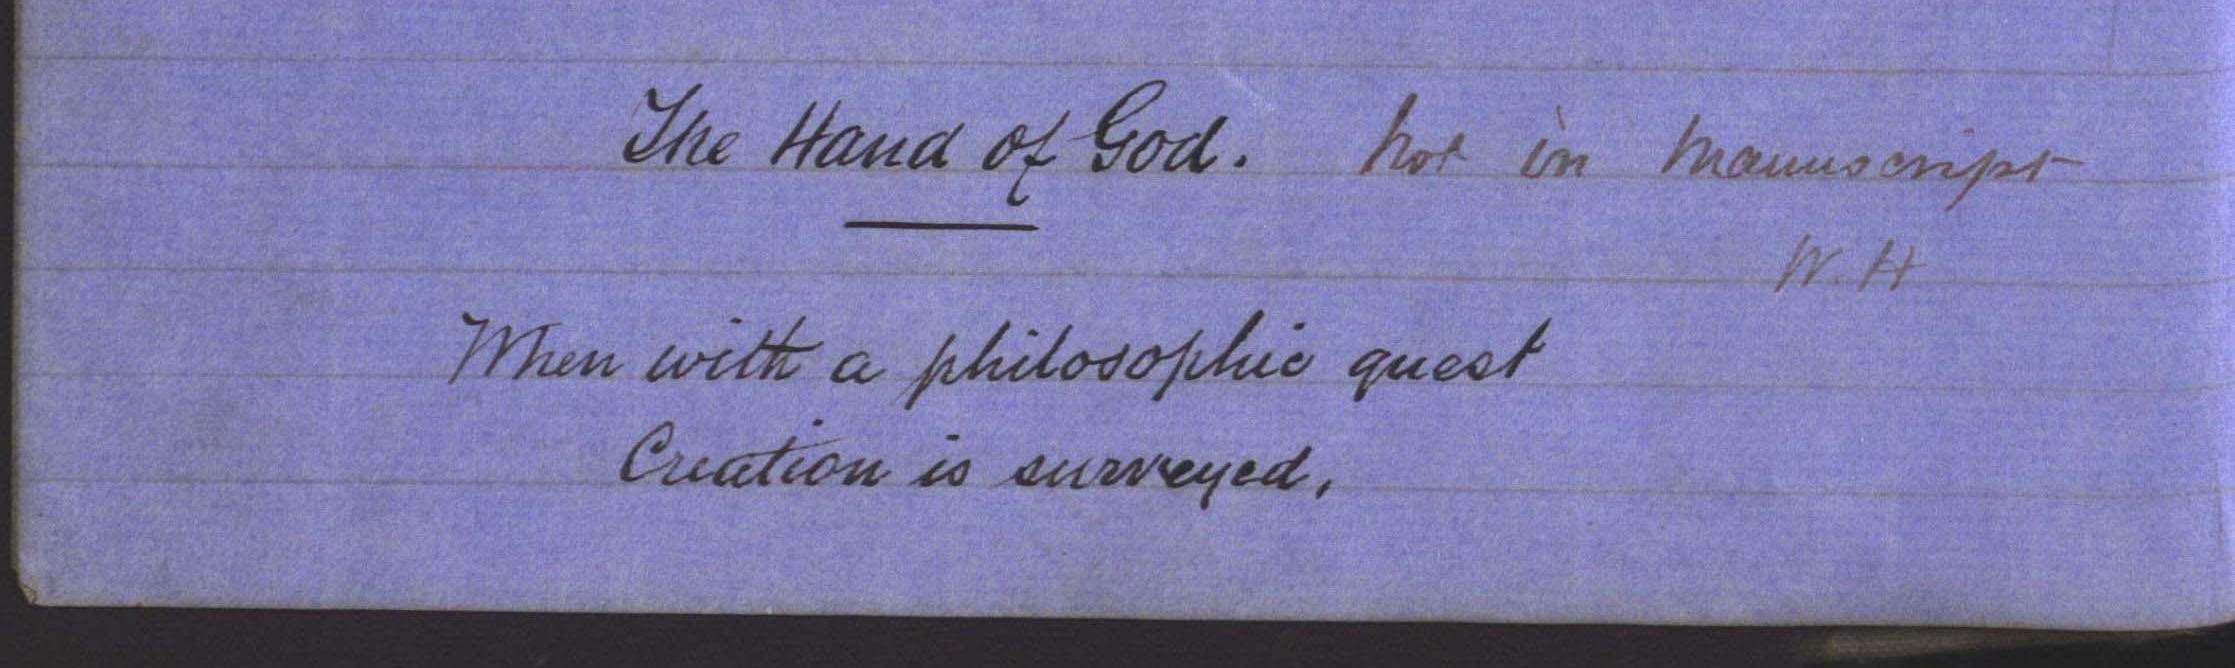 The Hand of God. Not in Manuscript
W. H
When with a philosophic quest
Creation is surveyed,